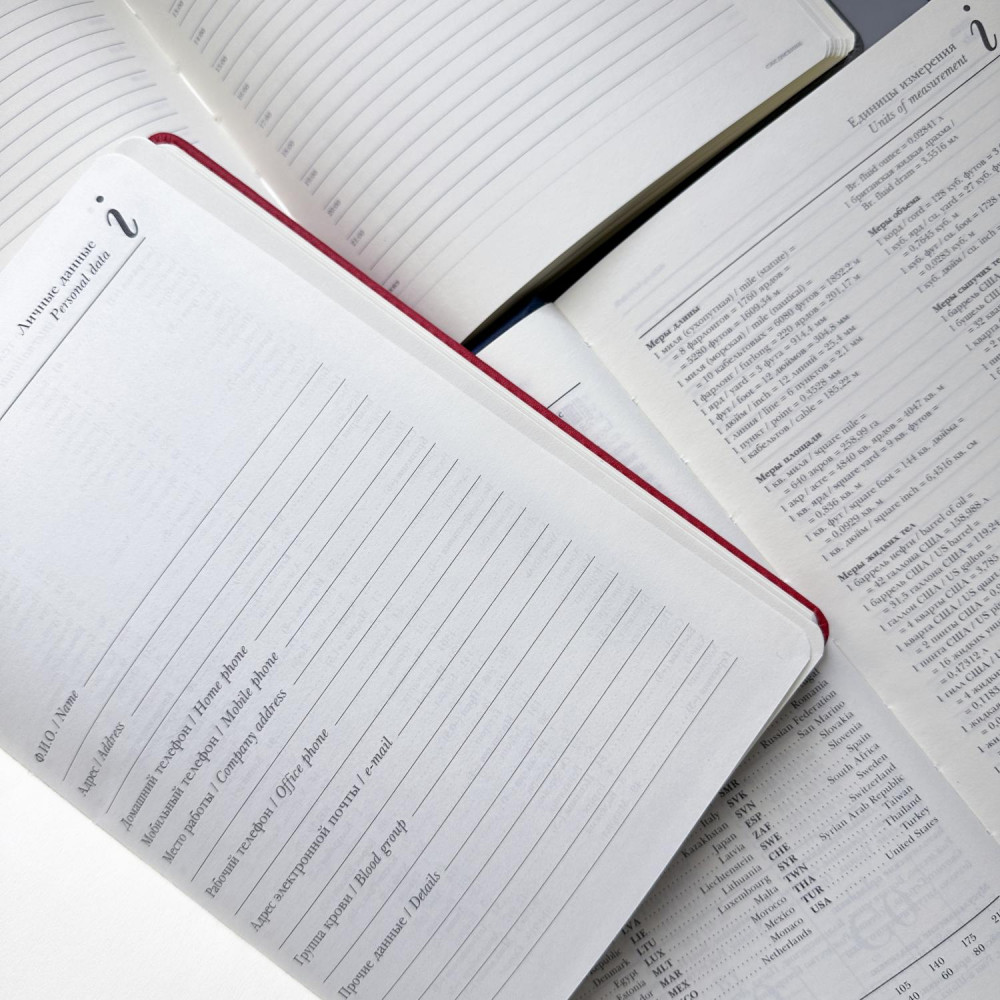 Личные данные
Personal data
i
Ф.И.О. / Name
Адрес / Address
Домашний телефон / Home phone
Мобильный телефон / Mobile phone
Место работы / Company address
Рабочий телефон / Office phone
Адрес электронной почты / e-mail
Группа крови / Blood group
Прочие данные / Details
Единицы измерения
Units of measurement
i
Меры длины
1 миля (сухопутная) / mile (statute) =
= 8 фарлонгов = 1760 ярдов =
= 5280 футов = 1609,34 м
1 миля (морская) / mile (nautical) =
= 10 кабельтовых = 6080 футов = 1852,2 м
1 фарлонг / furlong = 220 ярдов = 201,17 м
1 ярд / yard = 3 фута = 914,4 мм
1 фут / foot = 12 дюймов = 304,8 мм
1 дюйм / inch = 12 линий = 25,4 мм
1 линия / line = 6 пунктов = 2,1 мм
1 пункт / point = 0,3528 мм
1 кабельтов / cable = 185,22 м
Меры площади
1 кв. миля / square mile =
= 640 акров = 258,99 га
1 акр / acre = 4840 кв. ярдов = 4047 кв. м
1 кв. ярд / square yard = 9 кв. футов =
= 0,836 кв. м
1 кв. фут / square foot = 144 кв. дюйма =
= 0,0929 кв. м
1 кв. дюйм / square inch = 6,4516 кв. см
Меры жидких тел
1 баррель нефти / barrel of oil =
= 42 галлона США = 158,988 л
1 баррель США / US barrel =
= 31,5 галлона США = 119,24
1 галлон США / US gallon =
= 4 кварты США = 3,785
1 кварта США / US quart
= 2 пинты США = 0,9
1 пинта США / US
= 16 жидких унц
= 0,47312 л
1 гилл США / US
= 4 жидк
= 0,118
Br. fluid ounce = 0,02841 л
1 британская жидкая драхма /
Br. fluid dram = 3,5516 мл
Меры объема
1 корд / cord = 128 куб. футов = 3,
1 куб. ярд / cu. yard = 27 куб. фут
= 0,7645 куб. м
1 куб. фут / cu. foot = 1728
= 0,0283 куб. м
1 куб. дюйм / cu. inch
Меры сыпучих те
1 баррель США
1 бушель США
Romania
Russian Federation
San Marino
Slovakia
Slovenia
Spain
South Africa
Sweden
Switzerland
Syrian Arab Republic
Taiwan
Thailand
Turkey
United States
SMR
SVK
SVN
ESP
ZAF
SWE
CHE
SYR
TWN
THA
TUR
USA
Italy
Kazakhstan
Japan
Latvia
Liechtenstein
Lithuania
Luxembourg
Malta
Morocco
Mexico
Monaco
Netherlands
LVA
LIE
LTU
LUX
MLT
MAR
MEX
MCO
Denmark
Egypt
Estonia
105 140 175
60 80